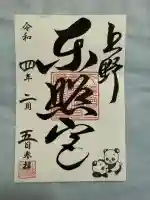 上野
東照宮
令和
四年
二月
五日参拝